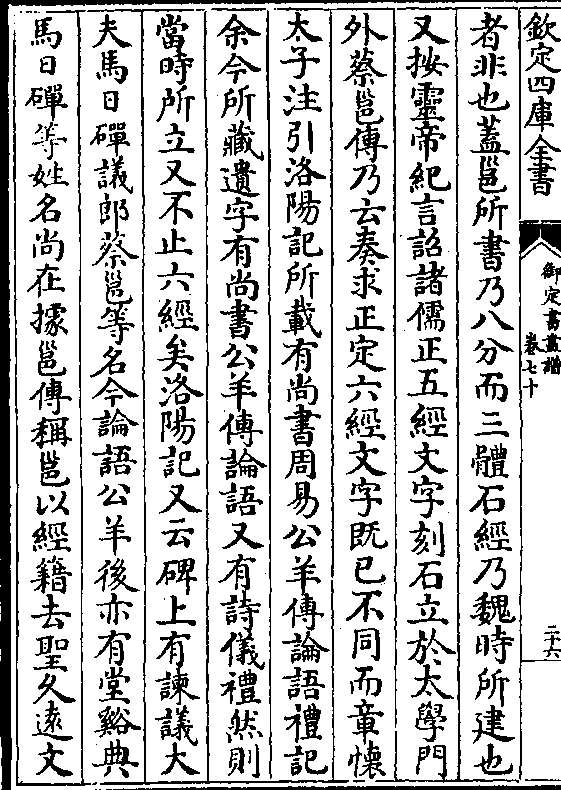 欽定四庫全書
御定書畫譜
卷七十
二十六
者非也蓋邕所書乃八分而三體石經乃魏時所建也
又按靈帝紀言詔諸儒正五經文字刻石立於太學門
外蔡邕傳乃云奏求正定六經文字既已不同而章懷
太子注引洛陽記所載有尚書周易公羊傳論語禮記
余今所藏遺字有尚書公羊傳論語又有詩儀禮然則
當時所立又不止六經矣洛陽記又云碑上有諫議大
夫馬日磾議郎蔡邕等名今論語公羊後亦有堂谿典
馬日磾等姓名尚在據邕傳稱邕以經籍去聖久遠文